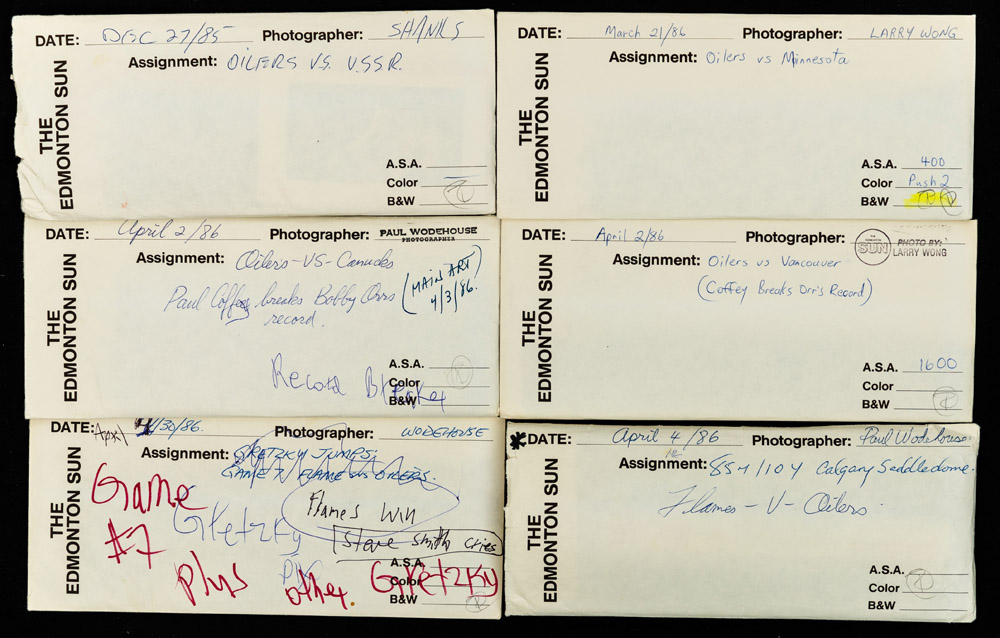 DATE: DEC 27/85 Photographer: SHANKS
Assignment: OILERS VS. U.S.S.R.
THE
EDMONTON SUN
A.S.A.
Color
B&W
DATE: March 21/86 Photographer: LARRY WONG
Assignment: Oilers vs Minnesota
THE
EDMONTON SUN
A.S.A. 400
Color Push 2
B&W
DATE: April 2/86 Photographer: PAUL WODEHOUSE
PHOTOGRAPHER
Assignment: Oilers-VS-Canucks
Paul Coffey breaks Bobby Orrs
record.
(MAIN ART)
4/3/86.
THE
EDMONTON SUN
Record Breaker
A.S.A.
Color
B&W
DATE: April 2/86 Photographer: THE EDMONTON SUN PHOTO BY: LARRY WONG
Assignment: Oilers vs Vancouver
(Coffey Breaks Orr's Record)
THE
EDMONTON SUN
A.S.A. 1600
Color
B&W
DATE: April /30/86. Photographer: WODEHOUSE
Assignment: GRETZKY JUMPS;
GAME 7 FLAMES vs OILERS.
THE
EDMONTON SUN
Game
#7
Gretzky
Flames Win
Steve Smith Cries
plus other Gretzky
A.S.A.
Color
B&W
*DATE: April 4/86 Photographer: Paul Wodehouse
Assignment: Calgary Saddledome.
Flames-V-Oilers.
THE
EDMONTON SUN
A.S.A.
Color
B&W